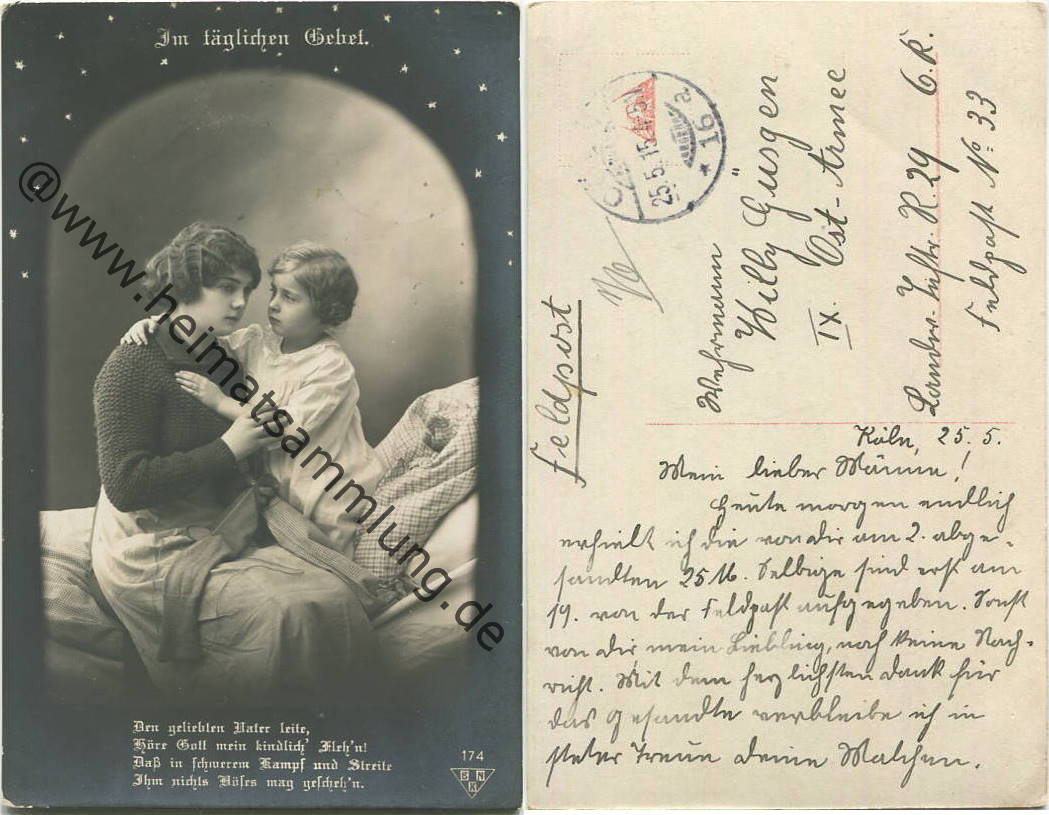 Im täglichen Gebet.
@www.heimatsammlung.de
Den geliebten Vater leite,
Höre Gott mein kindlich' Fleh'n!
Daß in schwerem Kampf und Streite
Ihm nichts Böses mag gescheh'n.
174
25.5.15
16
Feldpost
Wehrmann
Willy Güsgen
IX. Ost-Armee
Landw. Inftr. R. 29 6. K.
Feldpost No 33
Köln, 25. 5.
Mein lieber Männe!
Heute morgen endlich
erhielt ich die von dir am 2. abge-
sandten 25 M. Selbige sind erst am
19. von der Feldpost aufgegeben. Sonst
von dir mein Liebling, noch keine Nach-
richt. Mit dem herzlichsten Dank für
das Gesandte verbleibe ich in
steter Treue Deine Malchen.